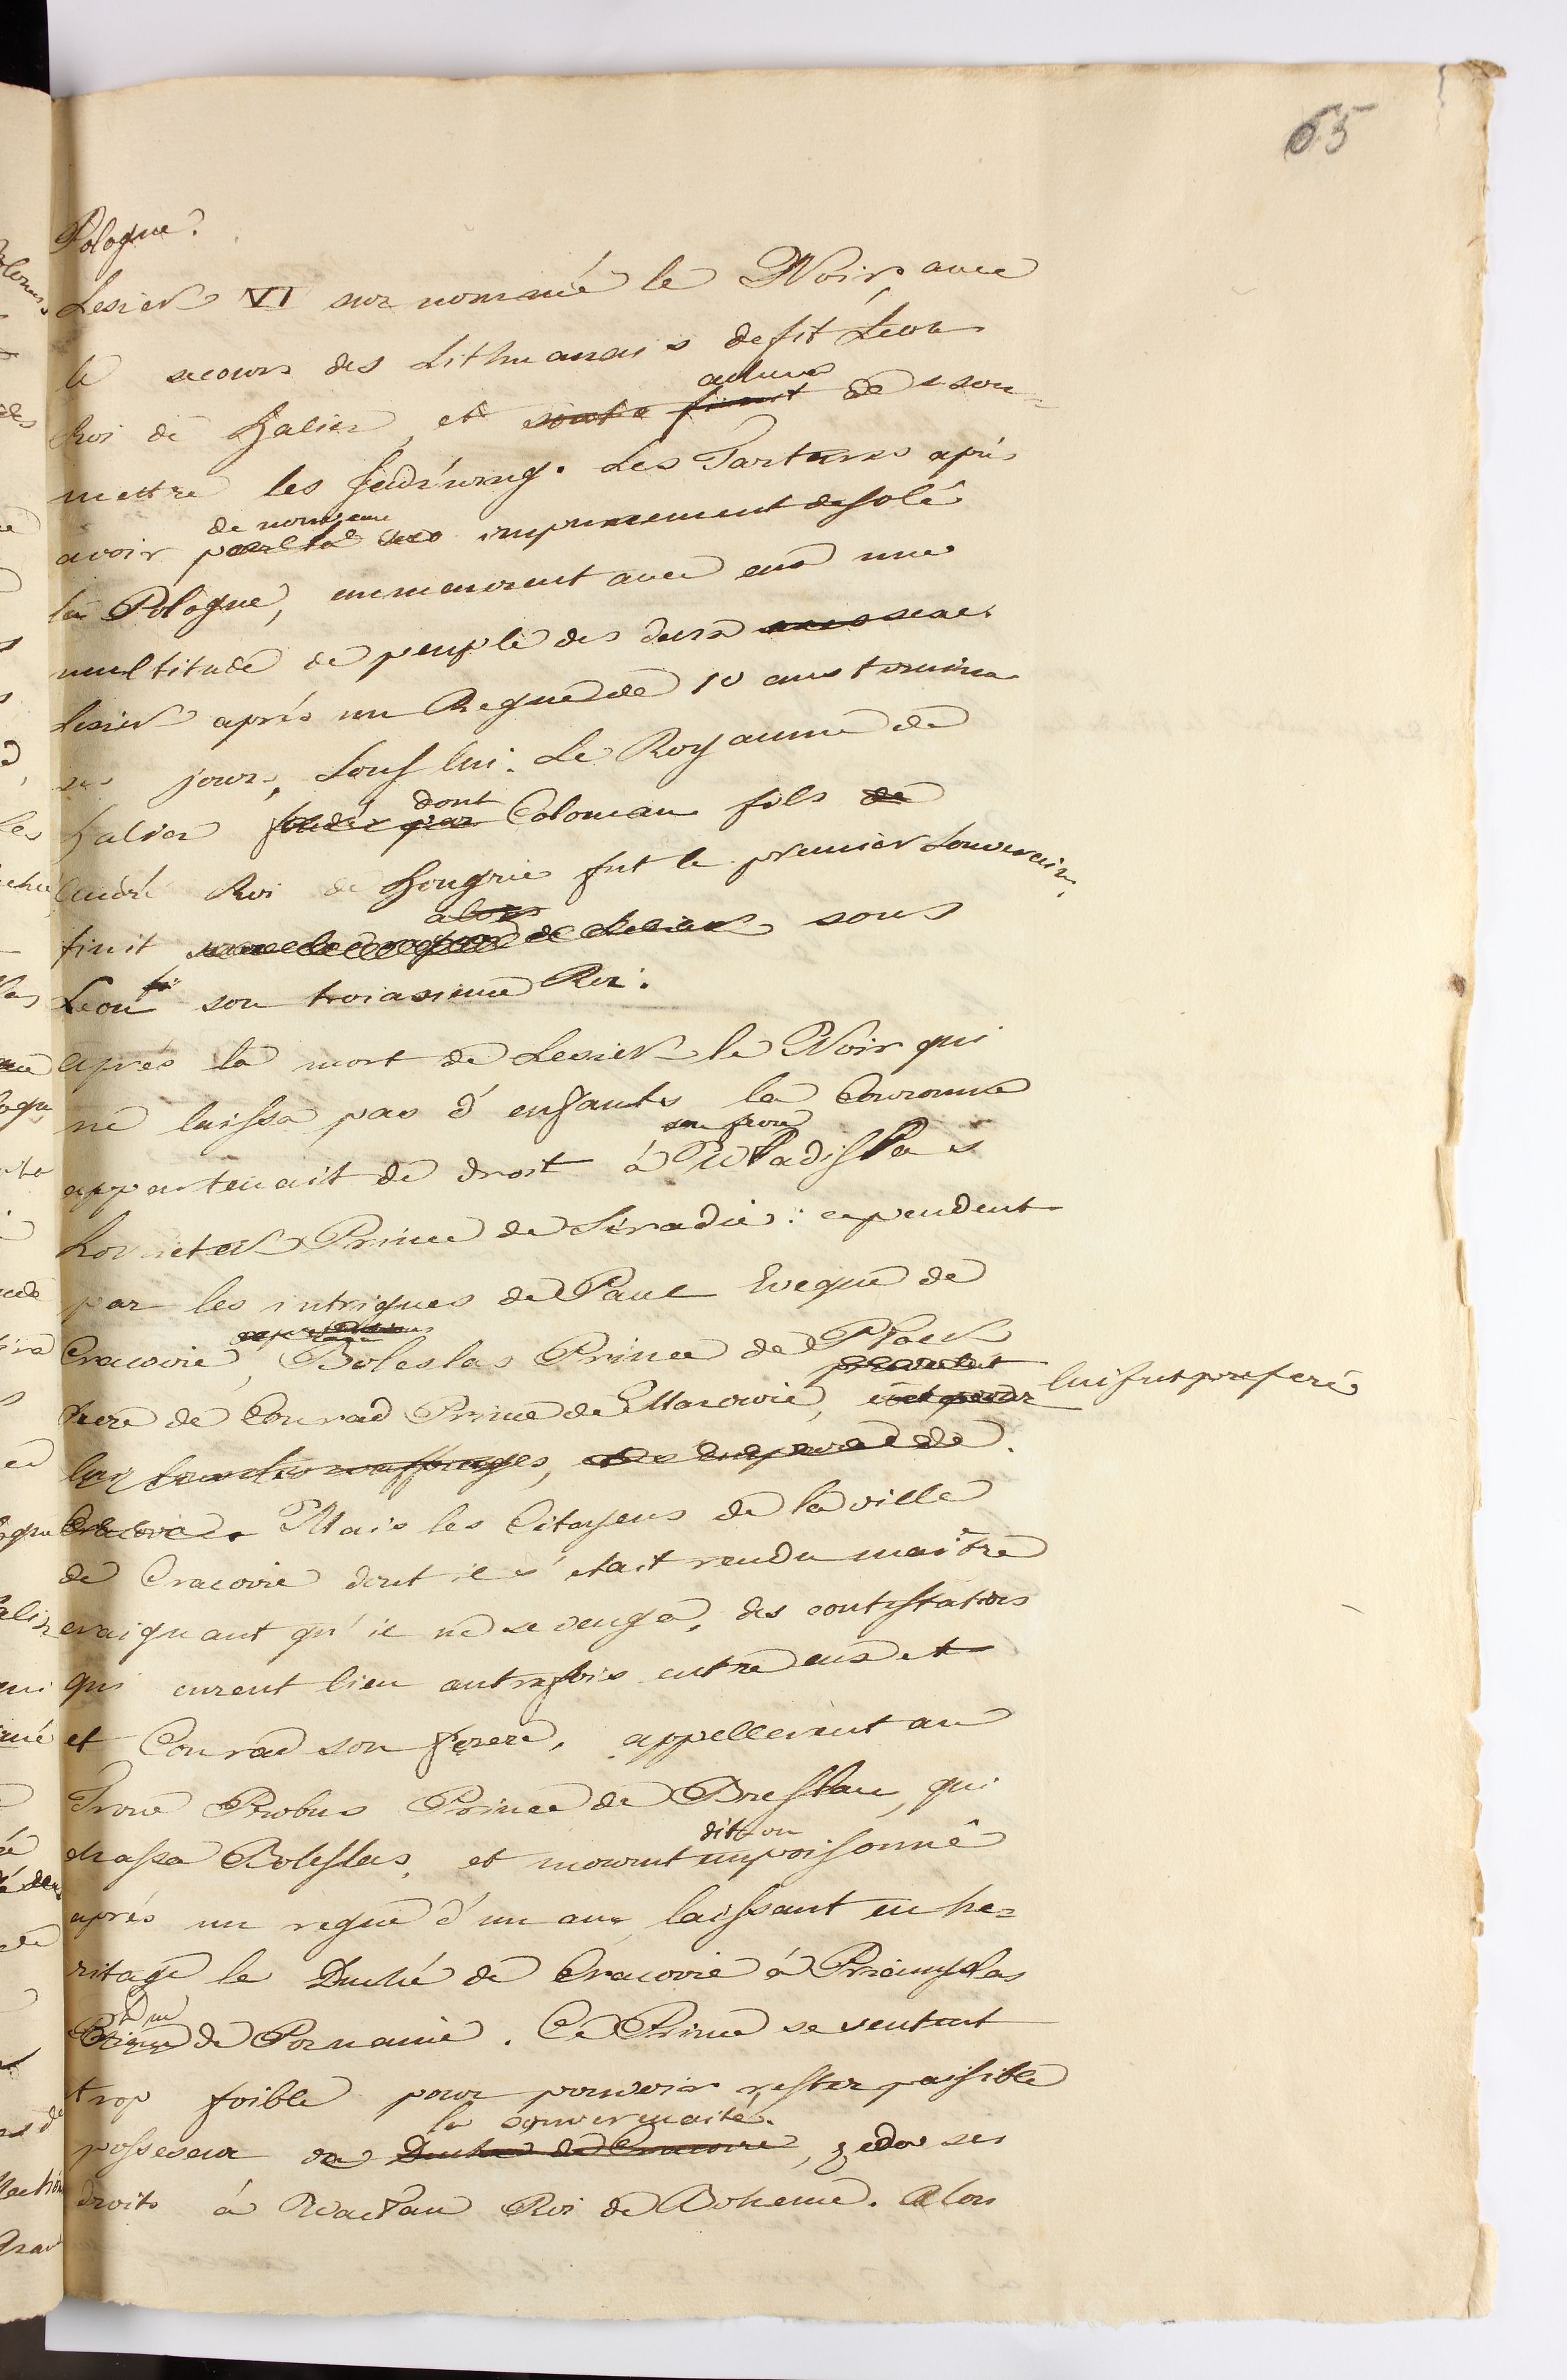 65
Pologne.
Lesiek VI sur nommé le Noir, avec
le secours des Lithuanais defit Léon
Roi de Halicz, et acheva de sou-
mettre les Jadźwing. Les Tartares après
avoir de nouveau impunement desolé
la Pologne, emmenerent avec eux une
multitude de peuple des deux sexes.
Lesiek après un Regne de 10 ans termina
ses jours, Sous lui. Le Royaume de
Halicz dont Coloman fils de
André Roi de Hongrie fut le premier Souverain,
finit alors sous
Léon son troiasieme Roi.
après la mort de Lesiek le Noir qui
ne laissa pas d'enfants la Couronne
appartenait de droit à son frere Władisłas
Łokietek Prince de Siradie: cependent
par les intrigues de Paul Eveque de
Cracovie, Boleslas Prince de Płock
frere de Conrad Prince de Mazovie, lui fut preferé
lui tous les suffrages,
Cracovie. Mais les Citoyens de la ville
de Cracovie dont il s'etait rendu maitre
craignant qu'il ne se venge, des contestations
qui eurent lieu autrefois entre eux et
et Conrad son frere, appellerent au
Trone Probus Prince de Breslau, qui
chassa Boleslas, et mourut dit on empoisonné
après un regne d'un an, laissant en he-
ritage le Duché de Cracovie à Przemysłas
de Poznanie. Ce Prince se sentant
trop foible pour pouvoir rester paisible
possesseur de la souveraineté. Duché de Cracovie, ceda ses
droits à Wacłau Roi de Boheme. Alors